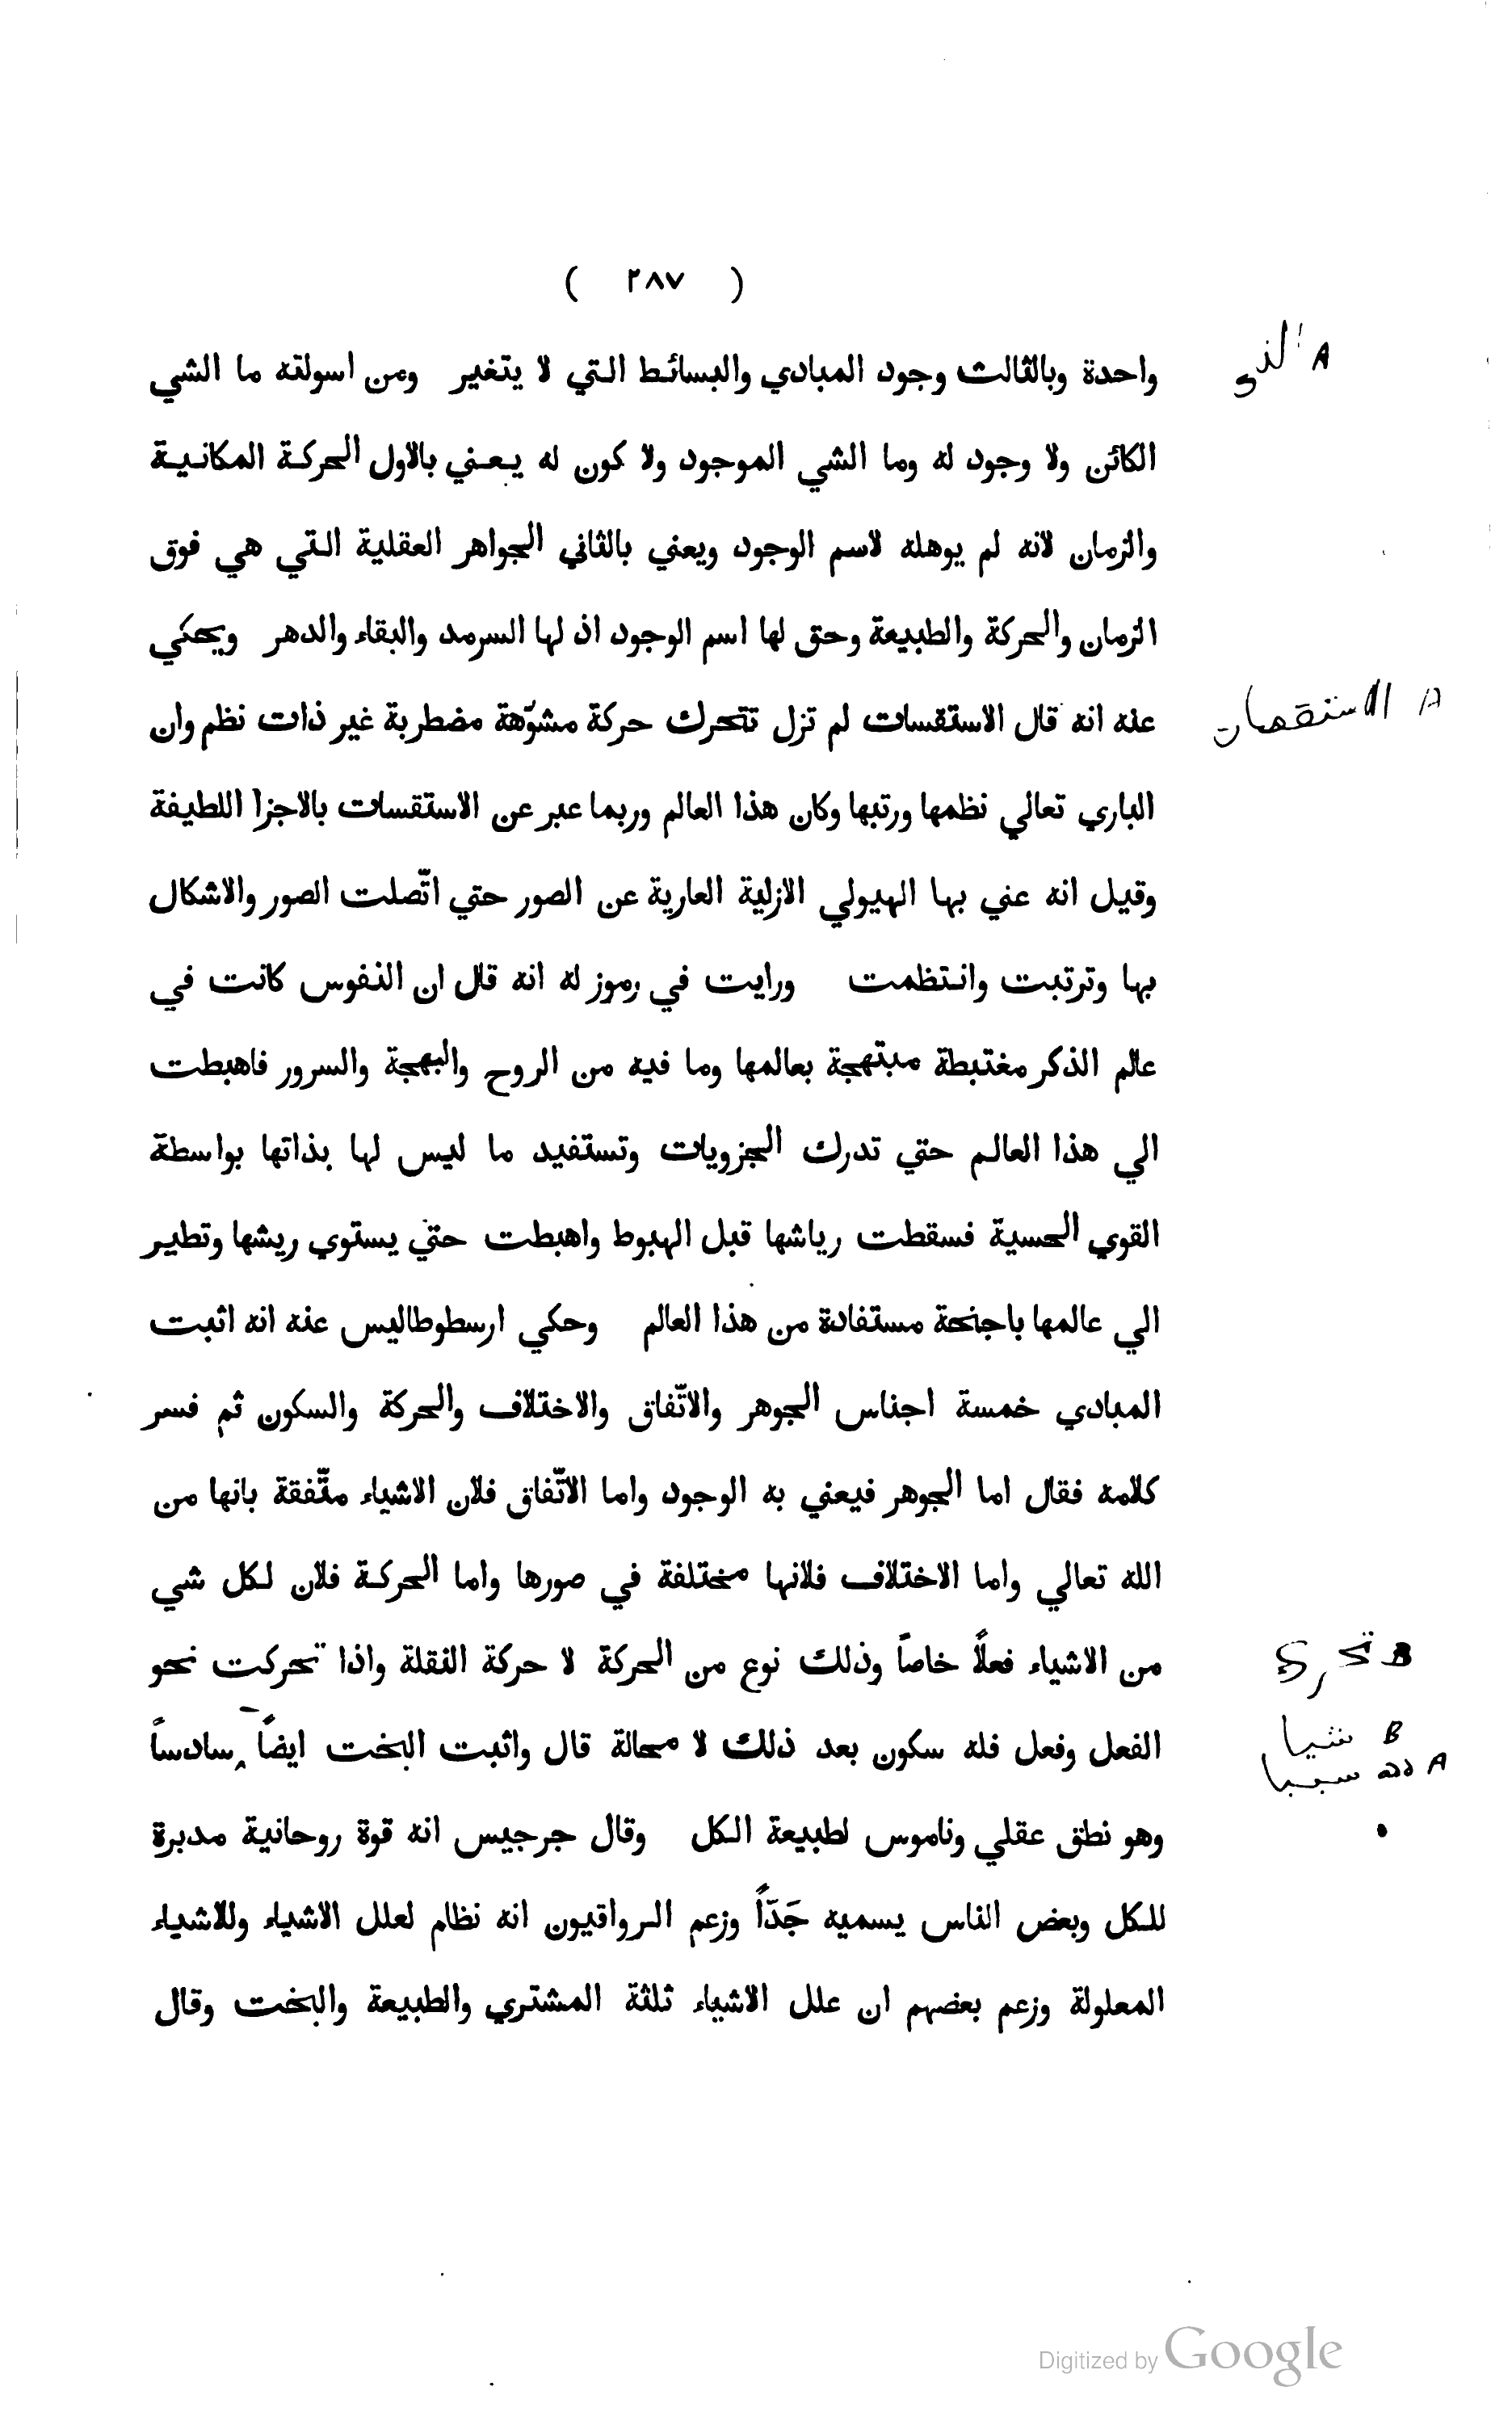 ( ٢٨٧ )
واحدة وبالثالث وجود المبادي والبسائط التي لا يتغير ومن اسولته ما الشي
A الذي
الكائن ولا وجود له وما الشي الموجود ولا كون له يعني بالاول الحركة المكانية
والزمان لانه لم يوهله لاسم الوجود ويعني بالثاني الجواهر العقلية التي هي فوق
الزمان والحركة والطبيعة وحق لها اسم الوجود اذ لها السرمد والبقاء والدهر ويحكي
عنه انه قال الاستقسات لم تزل تتحرك حركة مشوّهة مضطربة غير ذات نظم وان
A الاستقصات
الباري تعالي نظمها ورتبها وكان هذا العالم وربما عبر عن الاستقسات بالاجزا اللطيفة
وقيل انه عني بها الهيولي الازلية العارية عن الصور حتي اتّصلت الصور والاشكال
بها وترتبت وانتظمت ورايت في رموز له انه قال ان النفوس كانت في
عالم الذكر مغتبطة مبتهجة بعالمها وما فيه من الروح والبهجة والسرور فاهبطت
الي هذا العالم حتي تدرك الجزويات وتستفيد ما ليس لها بذاتها بواسطة
القوي الحسية فسقطت رياشها قبل الهبوط واهبطت حتي يستوي ريشها وتطير
الي عالمها باجنحة مستفادة من هذا العالم وحكي ارسطوطاليس عنه انه اثبت
المبادي خمسة اجناس الجوهر والاتّفاق والاختلاف والحركة والسكون ثم فسر
كلامه فقال اما الجوهر فيعني به الوجود واما الاتّفاق فلان الاشياء متّفقة بانها من
الله تعالي واما الاختلاف فلانها مختلفة في صورها واما الحركة فلان لكل شي
من الاشياء فعلاً خاصاً وذلك نوع من الحركة لا حركة النقلة واذا تحركت نحو
B
الفعل وفعل فله سكون بعد ذلك لا محالة قال واثبت البخت ايضاً سادساً
B شيا
A سببا
وهو نطق عقلي وناموس لطبيعة الكل وقال جرجيس انه قوة روحانية مدبرة
للكل وبعض الناس يسميه جَدّاً وزعم الرواقيون انه نظام لعلل الاشياء وللاشياء
المعلولة وزعم بعضهم ان علل الاشياء ثلثة المشتري والطبيعة والبخت وقال
Digitized by Google